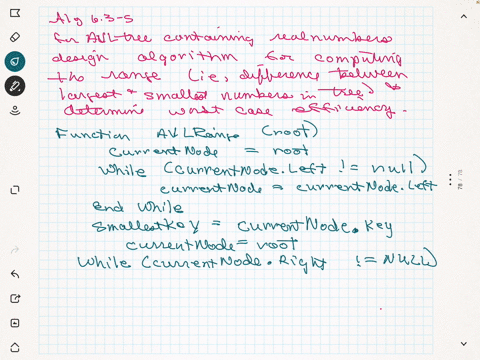 Alg 6.3-5
for AVL tree containing real numbers
design algorithm for computing
the range (ie, difference between
largest & smallest numbers in tree) &
determine worst case efficiency.
Function AVLRange (root)
currentNode = root
while (currentNode.Left != null)
currentNode = currentNode.Left
end while
smallestKey = currentNode.Key
currentNode = root
while (currentNode.Right != NULL)
78 / 78